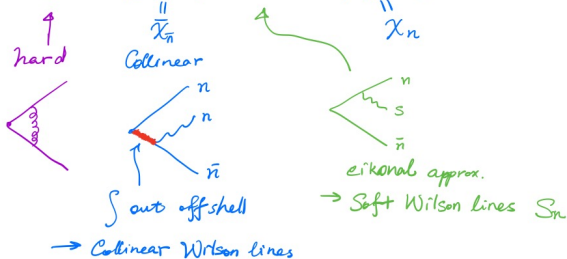 || ||
χ̄n̄ χn
hard Collinear
n n
n s
n̄ n̄
eikonal approx.
∫ out offshell → Soft Wilson lines Sn
→ Collinear Wilson lines